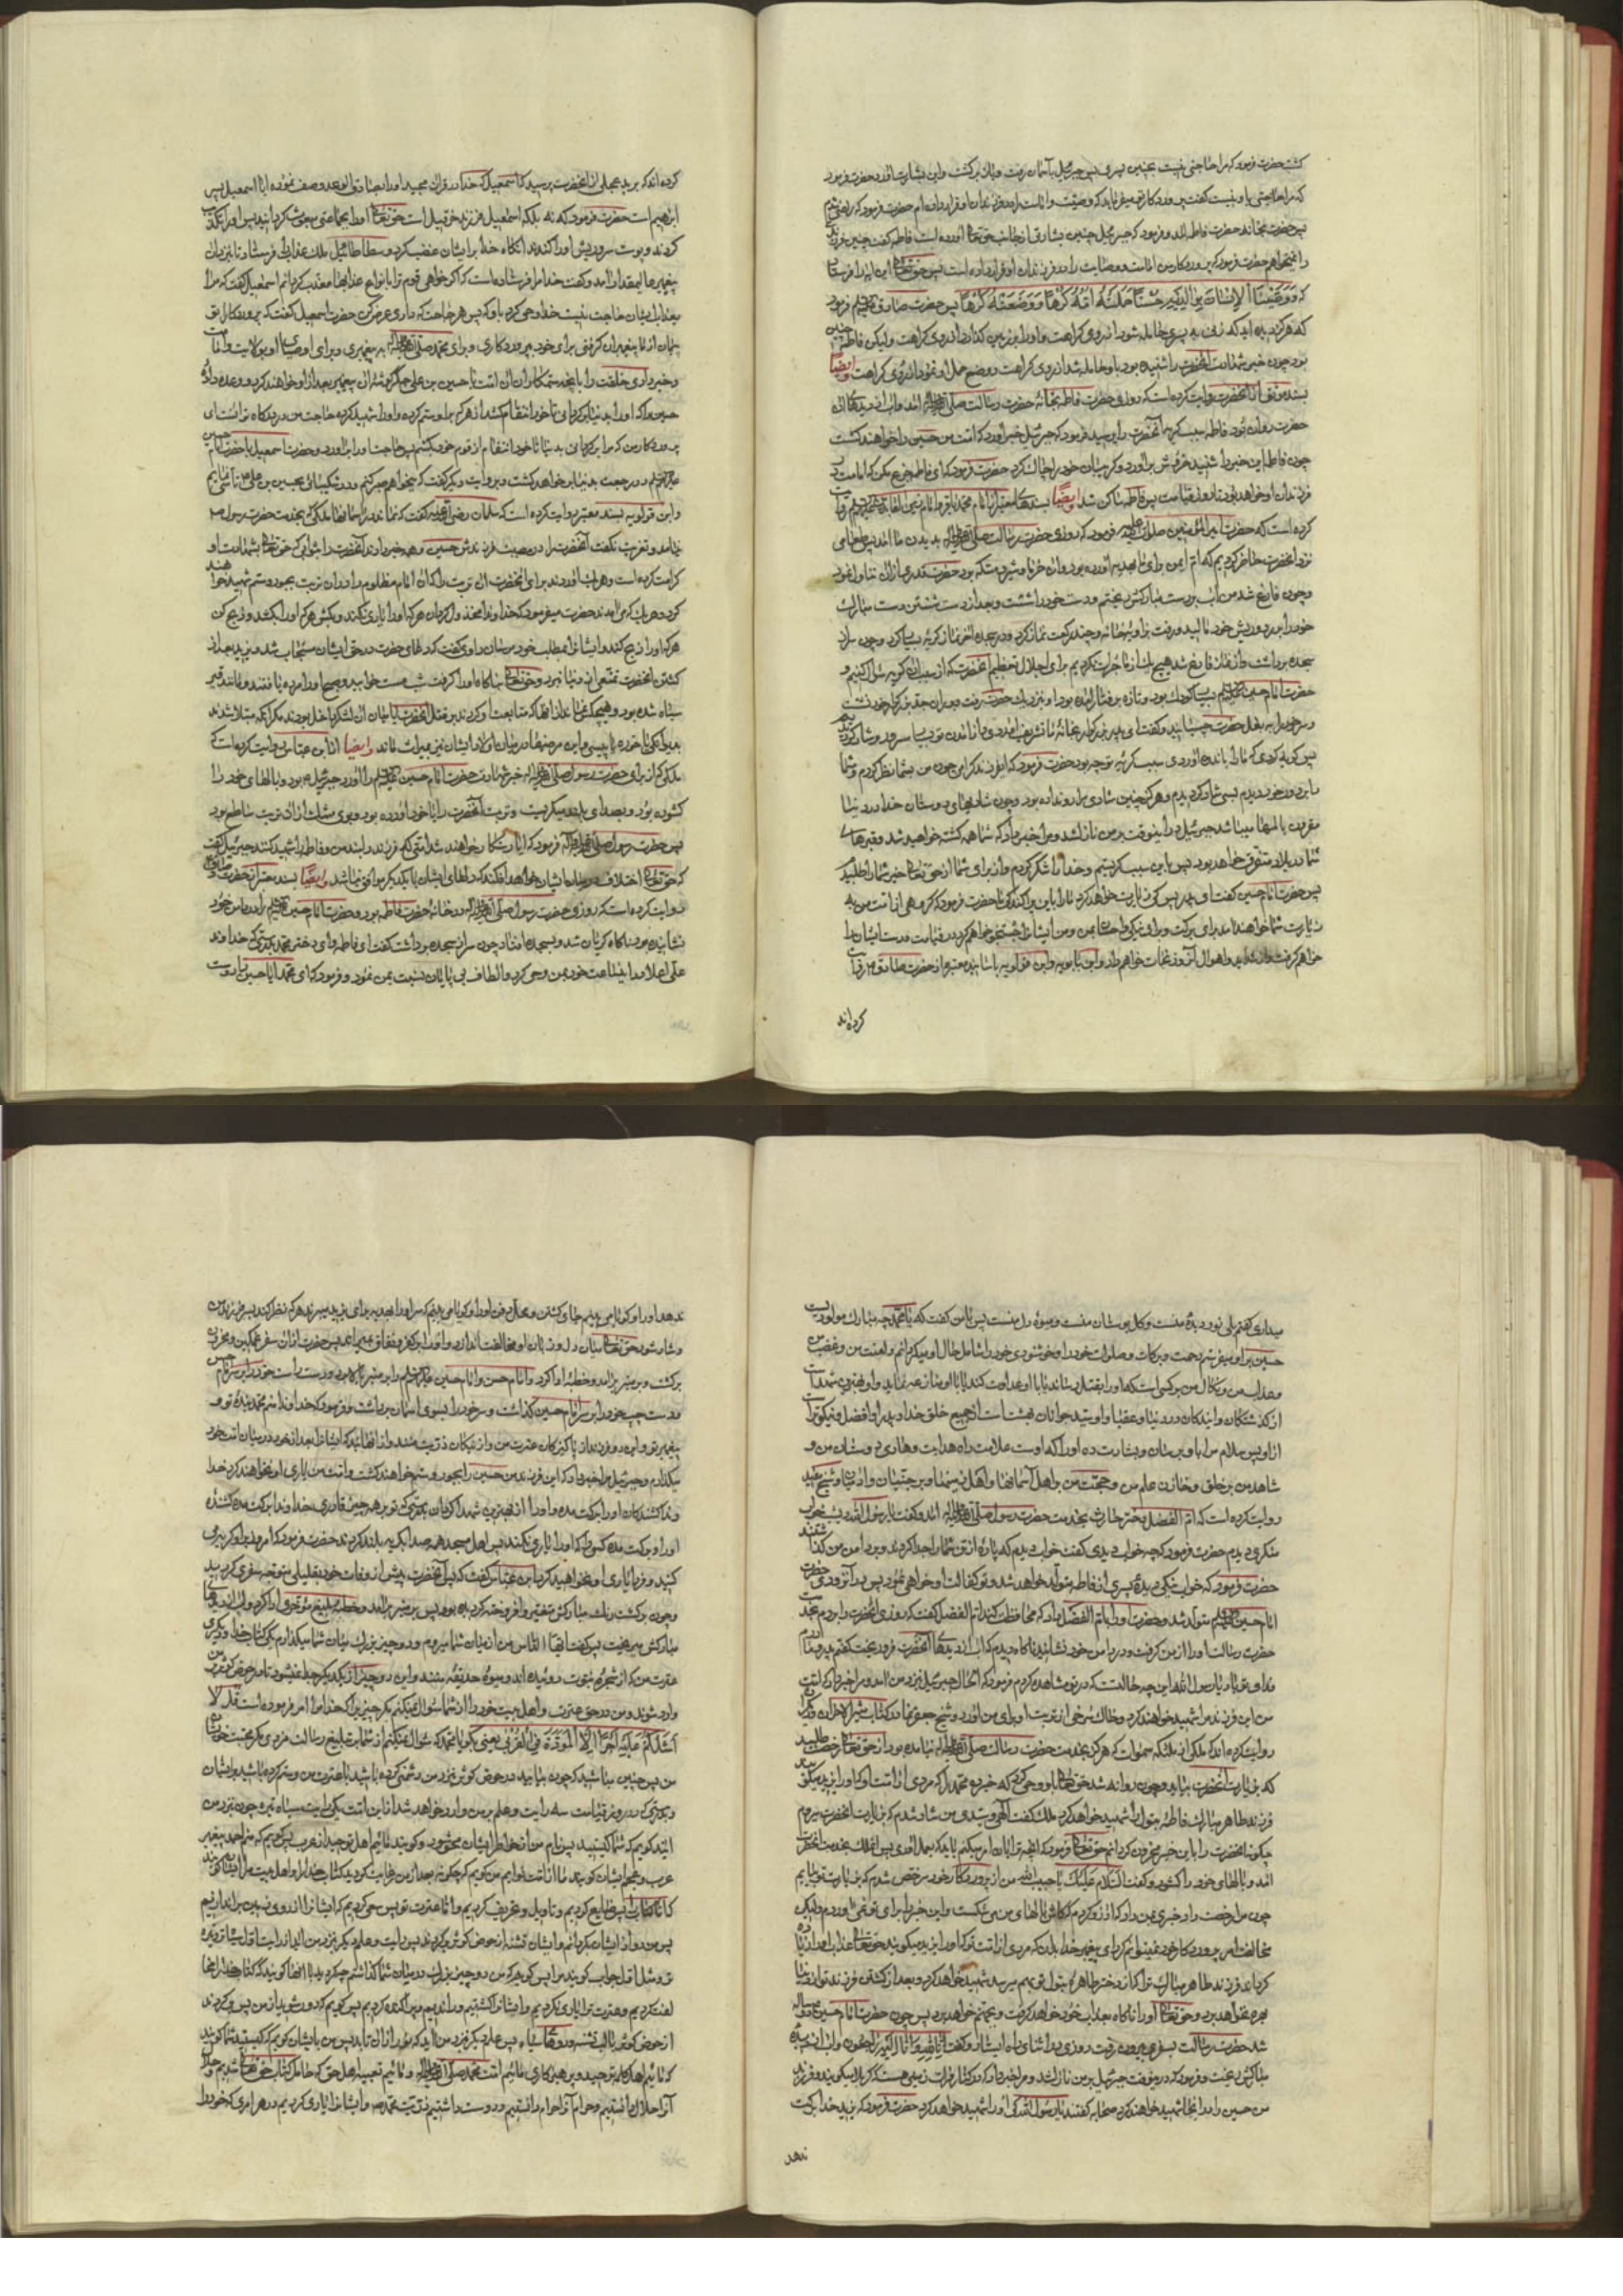 کشت حضرت فرمود که مرا حاجتی نیست بچنین پسری پس جبرئیل بآسمان رفت و باز برکشت و این بشارت آورد حضرت فرمود
که مرا حاجتی باو نیست گفت پروردگارت میفرماید که وصیت و امامت را در فرزندان او قرار داده‌ام حضرت فرمود که راضی شدم
پس حضرت بخانه حضرت فاطمه آمد و فرمود که جبرئیل چنین بشارتی از جانب حق تعالی آورده است فاطمه گفت چنین فرزند
را نمیخواهم حضرت فرمود که پروردگار من امامت و وصایت را در فرزندان او قرار داده است پس حق تعالی این آیه را فرستاد
که وَوَصَّیْنَا الْاِنْسَانَ بِوَالِدَیْهِ حُسْنًا حَمَلَتْهُ اُمُّهُ کُرْهًا وَوَضَعَتْهُ کُرْهًا پس حضرت صادق فرمود
که هرگز دیده‌اید که زنی به پسری حامله شود از روی کراهت و او را بر زمین گذارد از روی کراهت ولیکن فاطمه چنین
بود چون خبر شهادت آنحضرت را شنیده بود باو حامله شد از روی کراهت و وضع حمل او نمود از روی کراهت وایضاً
بسند موثق از آنحضرت روایت کرده است که روزی حضرت فاطمه بخانه حضرت رسالت صلی الله علیه وآله آمد و آب از دیدهای آن
حضرت روان بود فاطمه سبب گریه آنحضرت را پرسید فرمود که جبرئیل خبر آورد که امت من حسین را خواهند کشت
چون فاطمه این خبر را شنید خروش برآورد و گریبان خود را چاک کرد حضرت فرمود که ای فاطمه جزع مکن که امامت در
فرزندان او خواهد بود تا روز قیامت پس فاطمه ساکن شد وایضاً بسندهای معتبر از امام محمد باقر و امام زین العابدین روایت
کرده است که حضرت امیرالمؤمنین صلوات الله علیه فرمود که روزی حضرت رسالت صلی الله علیه وآله بدیدن ما آمد پس طعامی
نزد آنحضرت حاضر کردیم که ام ایمن برای ما بهدیه آورده بود و آن خرما و شیر و مسکه بود حضرت قدری از آن تناول نمود
و چون فارغ شد من آب بر دست مبارکش ریختم و دست خود را شست و بعد از دست شستن دست مبارک
خود را بر رو و ریش خود مالید و رفت بزاویه خانه و چند رکعت نماز کرد و در سجده آخر نماز گریه بسیار کرد و چون سر از
سجده برداشت و از نماز فارغ شد هیچ یک از ما جرأت نکردیم برای اجلال و تعظیم آنحضرت که از سبب آن گریه سؤال کنیم و
حضرت امام حسین بسیار کودک بود و تازه برفتار آمده بود او بنزدیک حضرت رفت و بر دامن جد بزرگوار خود نشست
و سر خود را به بغل حضرت چسبانید و گفت ای پدر بزرگوار بخانه ما تشریف آوردی و از آمدن تو بسیار مسرور و شاد گردیدیم
پس گریه کردی که ما را باندوه آوردی سبب گریه تو چه بود حضرت فرمود که ای فرزند گرامی چون من بشما نظر کردم و شما
را بر دور خود دیدم بسی شاد گردیدم و هرگز چنین شادی مرا رو نداده بود و چون شادیهای دوستان خدا در دنیا
مقرون بالمها میباشد جبرئیل در اینوقت بر من نازل شد و مرا خبر داد که شما همه کشته خواهید شد و قبرهای
شما در بلاد متفرق خواهد بود پس باین سبب گریستم و خدا را شکر کردم و از برای شما از حق تعالی خیر شما را طلبیدم
پس حضرت امام حسین گفت ای پدر پس کی زیارت خواهد کرد ما را باین پراکندگی ما حضرت فرمود که گروهی از امت من به
زیارت شما خواهند آمد برای برکت و برای نیکی و احسان بمن و من ایشان را جستجو خواهم کرد در قیامت و دست ایشان را
خواهم گرفت و از شداید و اهوال آن روز نجات خواهم داد و ابن بابویه و ابن قولویه باسانید معتبر از حضرت صادق ع روایت
کرده‌اند
کرده‌اند که برید عجلی از آنحضرت پرسید که اسمعیل که خدا در قرآن مجید او را بصادق الوعد وصف نموده آیا اسمعیل پسر
ابراهیم است حضرت فرمود که نه بلکه اسمعیل فرزند حزقیل است حق تعالی او را بجماعتی مبعوث گردانید پس او را تکذیب
کردند و پوست سر و ریش او را کندند آنگاه خدا بر ایشان غضب کرد و سطاطائیل ملک عذاب را فرستاد تا بنزد آن
پیغمبر عالیمقدار آمد و گفت خدا مرا فرستاده است که اگر خواهی قوم ترا بانواع عذابها معذب گردانم اسمعیل گفت که مرا
بعذاب ایشان حاجت نیست خدا وحی کرد باو که پس هر حاجت که داری عرض کن حضرت اسمعیل گفت که پروردگارا تو
پیمان از ما پیغمبران گرفتی برای خود بپروردگاری و برای محمد صلی الله علیه وآله به پیغمبری و برای اوصیای او بولایت و امامت
و خبر دادی خلقت را بآنچه ستمکاران آن امت با حسین بن علی جگرگوشه آن پیغمبر بعد از او خواهند کرد و وعده داده
حسین را که او را بدنیا برگردانی تا خود انتقام کشد از هر که بر او ستم کرده و او را شهید کرده حاجت من بدرگاه تو آنست ای
پروردگار من که مرا برگردانی بدنیا تا خود انتقام از قوم خود بکشم پس حاجت او را برآورد و حضرت اسمعیل با حضرت امام حسین
در رجعت بدنیا بر خواهد گشت و بروایت دیگر گفت که میخواهم صبر کنم و در شکیبائی بحسین بن علی تأسی نمایم
و ابن قولویه بسند معتبر روایت کرده است که سلمان رضی الله عنه گفت که نماند در آسمانها ملکی که بخدمت حضرت رسول ص
نیامد و تعزیت نگفت آنحضرت را در مصیبت فرزندش حسین و همه خبر دادند آنحضرت را بثوابی که حق تعالی بشهادت او
کرامت کرده است و هر یک آوردند برای آنحضرت آن تربت را که آن امام مظلوم را در آن تربت بجور و ستم شهید خواهند
کرد و هر یک که می‌آمدند حضرت میفرمود که خداوندا مخذول گردان هر که او را یاری نکند و بکش هر که او را بکشد و ذبح کن
هر که او را ذبح کند و ایشان را بمطلب خود مرسان راوی گفت که دعای حضرت در حق ایشان مستجاب شد و یزید بعد از
کشتن آنحضرت تمتعی از دنیا نبرد و حق تعالی بناگاه او را گرفت شب مست خوابید و صبح او را مرده یافتند و مانند قیر
سیاه شده بود و هیچکس نماند از آنها که متابعت او کردند بر قتل آنحضرت یا در میان آن لشکر داخل بودند مگر آنکه مبتلا شدند
بدیوانگی یا خوره یا پیسی و این مرضها در میان اولاد ایشان نیز بمیراث ماند وایضاً از ابن عباس روایت کرده است که
ملکی که از برای حضرت رسول صلی الله علیه وآله خبر شهادت حضرت امام حسین را آورد جبرئیل بود و بالهای خود را
گشوده بود و بصدای بلند میگریست و تربت آنحضرت را با خود آورده بود و بوی مشک از آن تربت ساطع بود
پس حضرت رسول صلی الله علیه وآله فرمود که آیا رستگار خواهند شد امتی که فرزند دلبند من و فاطمه را شهید کنند جبرئیل گفت
که حق تعالی اختلاف در میان ایشان خواهد افکند که دلهای ایشان با یکدیگر موافق نباشد وایضاً بسند معتبر از حضرت صادق
روایت کرده است که روزی حضرت رسول صلی الله علیه وآله در خانه حضرت فاطمه بود و حضرت امام حسین را در دامن خود
نشانیده بود ناگاه گریان شد و بسجده افتاد چون سر از سجده برداشت گفت ای فاطمه و ای دختر محمد بدرستی که خداوند
علی اعلا در اینساعت خود بمن وحی کرد و الطاف بی‌پایان نسبت بمن نمود و فرمود که ای محمد آیا حسین را دوست
میداری گفتم بلی نور دیده منست و گل بوستان منست و میوه دل منست پس بامن گفت که یا محمد چه مبارک مولودیست
حسین بر او میفرستم رحمت و برکات و صلوات خود را و خوشنودی خود را شامل حال او میگردانم و لعنت من و غضب من
و عذاب من و نکال من بر کسی است که او را بقتل رساند یا با او عداوت کند یا با او منازعه نماید و او بهترین شهداست
از گذشتگان و آیندگان در دنیا و عقبا و او سید جوانان بهشت است از جمیع خلق خدا و پدر او افضل و نیکوتر است
از او پس سلام مرا باو برسان و بشارت ده او را که اوست علامت راه هدایت و هادی دوستان من و
شاهد من بر خلق و خازن علم من و حجت من بر اهل آسمانها و اهل زمینها و بر جنیان و آدمیان و شیخ مفید
روایت کرده است که ام الفضل دختر حارث بخدمت حضرت رسول صلی الله علیه وآله آمد و گفت یا رسول الله دیشب خواب
منکری دیدم حضرت فرمود که چه خواب دیدی گفت خواب دیدم که پاره از تن شما را جدا کردند و بر دامن من گذاشتند
حضرت فرمود که خواب نیکی دیدهٔ پسری از فاطمه متولد خواهد شد و تو کفالت او خواهی نمود پس بعد از آن روزی حضرت
امام حسین متولد شد و حضرت او را بام الفضل داد که محافظت کند ام الفضل گفت که روزی آنحضرت را بردم بخدمت
حضرت رسالت او را از من گرفت و در دامن خود نشانید ناگاه دیدم که آب از دیدهای آنحضرت فرو ریخت گفتم پدر و مادرم
فدای تو باد یا رسول الله این چه حالتست که در تو مشاهده کردم فرمود که الحال جبرئیل نزد من آمد و مرا خبر داد که امت
من این فرزند مرا شهید خواهند کرد و خاک سرخی از تربت او برای من آورد و شیخ جعفر بن نما در کتاب مثیر الاحزان و دیگران
روایت کرده‌اند که ملکی از ملائکه سموات که هرگز بخدمت حضرت رسالت صلی الله علیه وآله نیامده بود از حق تعالی رخصت طلبید
که بزیارت آنحضرت بیاید و چون روانه شد حق تعالی باو وحی کرد که خبر ده محمد را که مردی از امت او که او را یزید میگویند
فرزند طاهر مبارک فاطمه بتول را شهید خواهد کرد ملک گفت الهی و سیدی من شاد شدم که بزیارت آنحضرت میروم
چگونه آنحضرت را باین خبر محزون گردانم حق تعالی فرمود که آنچه ترا بآن امر میکنم باید که بعمل آوری پس آن ملک بخدمت آنحضرت
آمد و بالهای خود را گشود و گفت السلام علیک یا حبیب الله من از پروردگار خود مرخص شدم که بزیارت تو بیایم
چون مرا رخصت داد خبری بمن داد که آرزو کردم که کاش بالهای من می‌شکست و این خبر را برای تو نمی‌آوردم ولیکن
مخالفت امر پروردگار خود نمیتوانم کرد ای پیغمبر خدا بدان که مردی از امت تو که او را یزید میگویند حق تعالی عذاب او را زیاده
گرداند فرزند طاهر مبارک ترا که از دختر طاهره بتول تو بهم میرسد شهید خواهد کرد و بعد از کشتن فرزند تو از دنیا
بهره نخواهد برد و حق تعالی او را ناگاه بعذاب خود خواهد گرفت و بجهنم خواهد برد پس چون حضرت امام حسین دو ساله
شد حضرت رسالت بسفری بیرون رفت روزی در اثنای راه ایستاد و گفت اِنَّا لِلّهِ وَاِنَّا اِلَیْهِ رَاجِعُونَ و آب از دیدهٔ
مبارکش ریخت و فرمود که در اینوقت جبرئیل بر من نازل شد و مرا خبر داد که در کنار فرات زمینی هست که کربلا میگویند و فرزند
من حسین را در آنجا شهید خواهند کرد صحابه گفتند یا رسول الله کی او را شهید خواهد کرد حضرت فرمود که یزید خدا برکت
ندهد
ندهد او را و گویا می‌بینم جای کشتن و محل دفن او را و گویا می‌بینم که سر او را بهدیه برای یزید میبرند هر که نظر کند بسر فرزند من
و شاد شود حق تعالی میان دل و زبان او مخالفت اندازد و او را بر کفر و نفاق بمیراند پس حضرت از آن سفر غمگین و محزون
برگشت و بر منبر برآمد و خطبه ادا کرد و امام حسن و امام حسین را بر منبر بالا برد و دست راست خود را بر سر امام حسن
و دست چپ خود را بر سر امام حسین گذاشت و سر خود را بسوی آسمان برداشت و فرمود که خداوندا منم محمد بندهٔ تو و
پیغمبر تو و این دو فرزند از پاکیزگان عترت من و از نیکان ذریت منند و از آنهایند که ایشان را بعد از خود در میان امت خود
میگذارم و جبرئیل مرا خبر داد که این فرزند من حسین را بجور و ستم خواهند کشت و امت من یاری او نخواهند کرد خدا
وندا کشندگان او را برکت مده و او را از بهترین شهدا گردان بدرستی که تو بر همه چیز قادری خداوندا برکت مده کشندهٔ
او را و برکت مده کسی را که او را یاری نکند پس اهل مسجد همه صدا بگریه بلند کردند حضرت فرمود که امروز بر او گریه می
کنید و فردا یاری او نخواهید کرد ابن عباس گفت که پس آنحضرت پیش از وفات خود بقلیلی متوجه سفری گردید
و چون برگشت رنگ مبارکش متغیر و افروخته گردیده بود پس بر منبر برآمد و خطبه بلیغ موجزی ادا کرد و آب از دیدهای
مبارکش میریخت پس گفت ایها الناس من از میان شما میروم و دو چیز بزرگ میان شما میگذارم یکی کتاب خدا و دیگری
عترت من که از شجره نبوت روئیده‌اند و میوهٔ حدیقه منند و این دو چیز از یکدیگر جدا نمیشود تا در حوض کوثر بر من
وارد شوند و من در حق عترت و اهل بیت خود را از شما سؤال نمیکنم مگر چیزی را که خدا مرا امر فرموده است قُل لا
اَسْئَلُکُمْ عَلَیْهِ اَجْرًا اِلَّا الْمَوَدَّةَ فِی الْقُرْبٰی یعنی بگو یا محمد که سؤال نمیکنم از شما بر تبلیغ رسالت مزدی مگر محبت خویشان
من پس چنین مباشید که چون بیایید در حوض کوثر بنزد من دشمنی کرده باشید با عترت من و ستم کرده باشید بر ایشان
و بدرستی که در روز قیامت سه رایت و علم بر من وارد خواهد شد از این امت یکی رایت سیاه تیره چون بنزد من
آیند گویم که شما کیستید پس نام من از خاطر ایشان محو شود و گویند مائیم اهل توحید از عرب پس گویم که منم احمد پیغمبر
عرب و عجم ایشان گویند ما از امت توایم من گویم که چگونه بعد از من رعایت کردید کتاب خدا را و اهل بیت مرا ایشان گویند
کتاب را پس ضایع کردیم و تأویل و تحریف کردیم و اما عترت تو پس سعی کردیم که ایشان را از روی زمین براندازیم
پس من رو از ایشان بگردانم و ایشان تشنه از حوض کوثر برگردند پس رایت و علم دیگر بنزد من آید از رایت اول سیاه‌تر
و مثل اول جواب گویند من پس گویم که من دو چیز بزرگ در میان شما گذاشتم چه کردید با آنها گویند که کتاب خدا را مخا
لفت کردیم و عترت ترا یاری نکردیم و ایشان را کشتیم و راندیم و پراکنده کردیم پس گویم که دور شوید از من پس برگردند
از حوض کوثر با لب تشنه و روهای سیاه پس علم دیگر بنزد من آید که نور از آن تابد پس من با ایشان گویم که کیستید شما گویند
که مائیم اهل کلمه توحید و پرهیزکاری مائیم امت محمد صلی الله علیه وآله و مائیم بقیه اهل حق که حامل کتاب حق تعالی شدیم و حلال
آنرا حلال دانستیم و حرام آنرا حرام دانستیم و دوست داشتیم ذریت محمد ص را و ایشان را یاری کردیم در هر امری که خود را